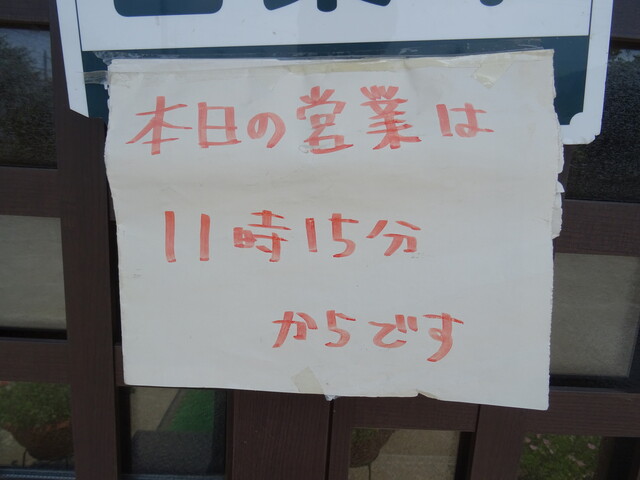 本日の営業は
11時15分
からです